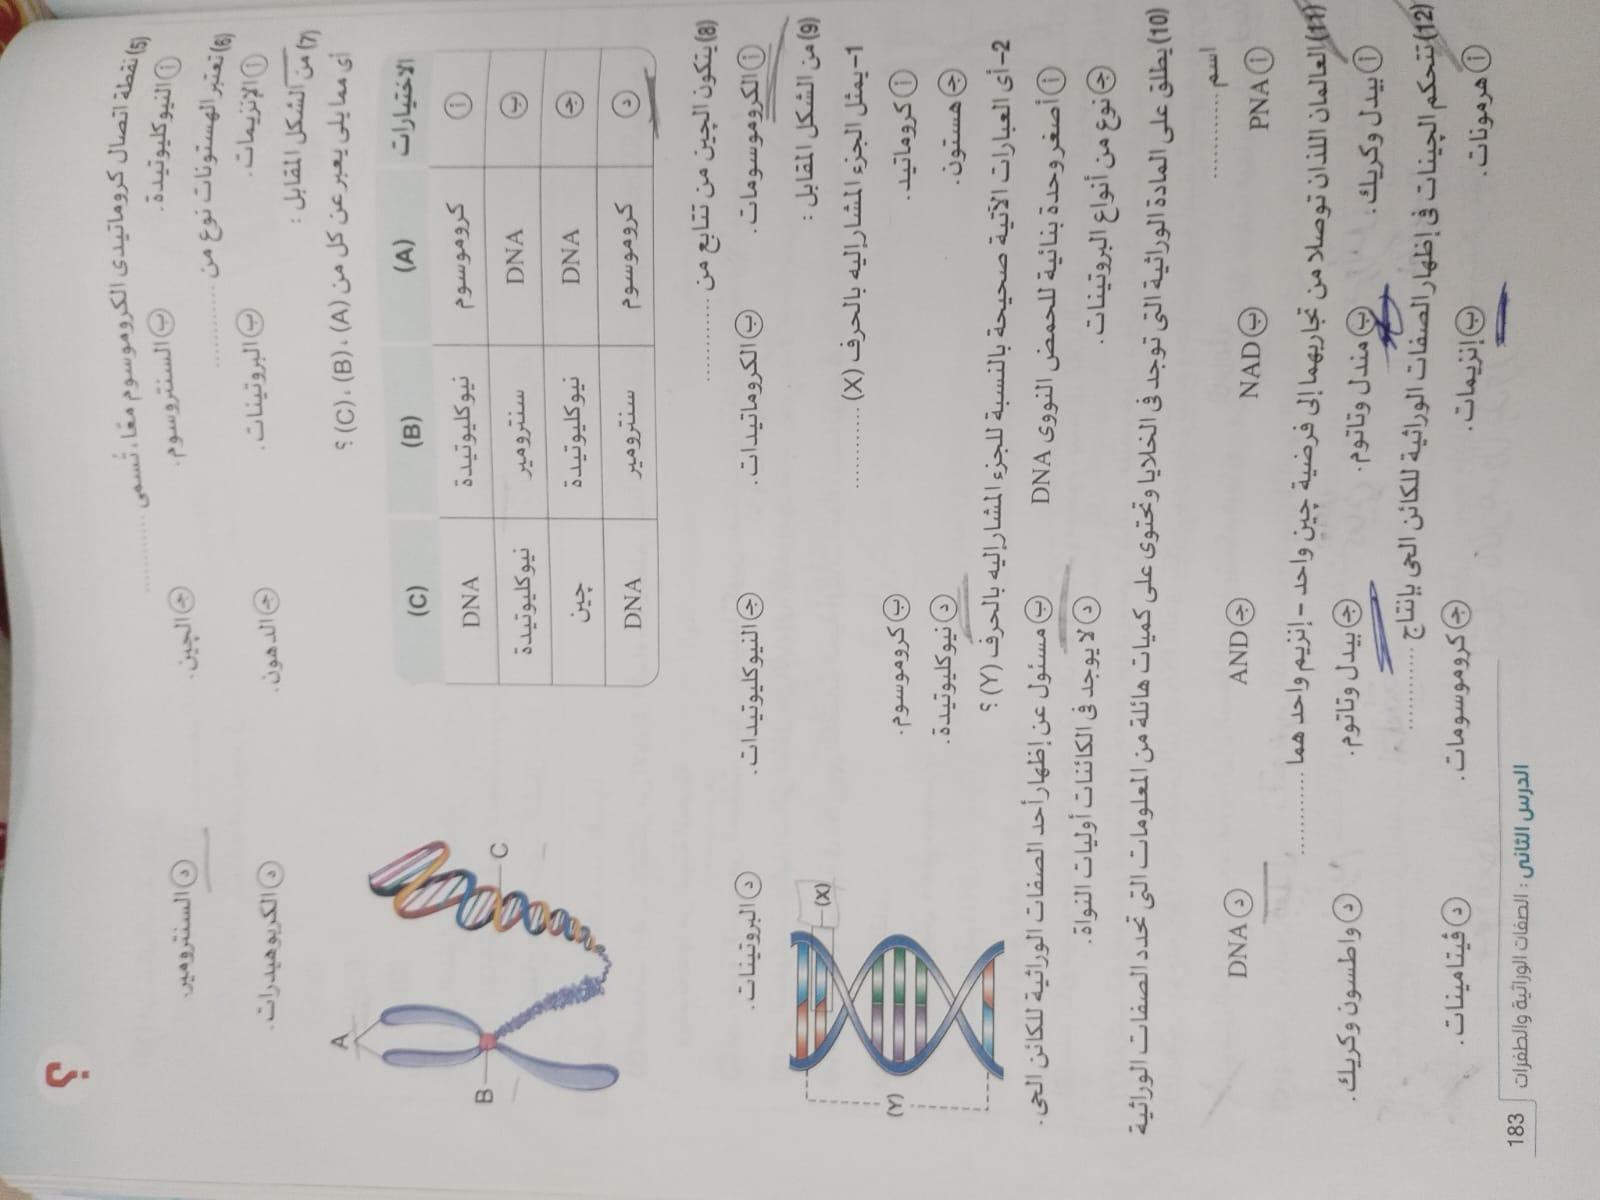 (5) نقطة اتصال كروماتيدى الكروموسوم معًا، تُسمى ............
أ النيوكليوتيدة.
ب السنتروسوم.
ج الجين.
د السنترومير.
(6) تعتبر الهستونات نوع من ............
أ الإنزيمات.
ب البروتينات.
ج الدهون.
د الكربوهيدرات.
(7) من الشكل المقابل :
أى مما يلى يعبر عن كل من (A)، (B)، (C) ؟
الاختيارات (A) (B) (C)
أ كروموسوم نيوكليوتيدة DNA
ب DNA سنترومير نيوكليوتيدة
ج DNA نيوكليوتيدة جين
د كروموسوم سنترومير DNA
A
B
C
(8) يتكون الجين من تتابع من ............
أ الكروموسومات.
ب الكروماتيدات.
ج النيوكليوتيدات.
د البروتينات.
(9) من الشكل المقابل :
1- يمثل الجزء المشار إليه بالحرف (X) ............
أ كروماتيد.
ب كروموسوم.
ج هستون.
د نيوكليوتيدة.
(X)
(Y)
2- أى العبارات الآتية صحيحة بالنسبة للجزء المشار إليه بالحرف (Y) ؟
أ أصغر وحدة بنائية للحمض النووى DNA
ب مسئول عن إظهار أحد الصفات الوراثية للكائن الحى.
ج نوع من أنواع البروتينات.
د لا يوجد فى الكائنات أوليات النواة.
(10) يطلق على المادة الوراثية التى توجد فى الخلايا وتحتوى على كميات هائلة من المعلومات التى تحدد الصفات الوراثية
اسم ............
أ PNA
ب NAD
ج AND
د DNA
(11) العالمان اللذان توصلا من تجاربهما إلى فرضية جين واحد - إنزيم واحد هما ............
أ بيدل وكريك.
ب مندل وتاتوم.
ج بيدل وتاتوم.
د واطسون وكريك.
(12) تتحكم الچينات فى إظهار الصفات الوراثية للكائن الحى بإنتاج ............
أ هرمونات.
ب إنزيمات.
ج كروموسومات.
د ڤيتامينات.
183 الدرس الثانى : الصفات الوراثية والطفرات